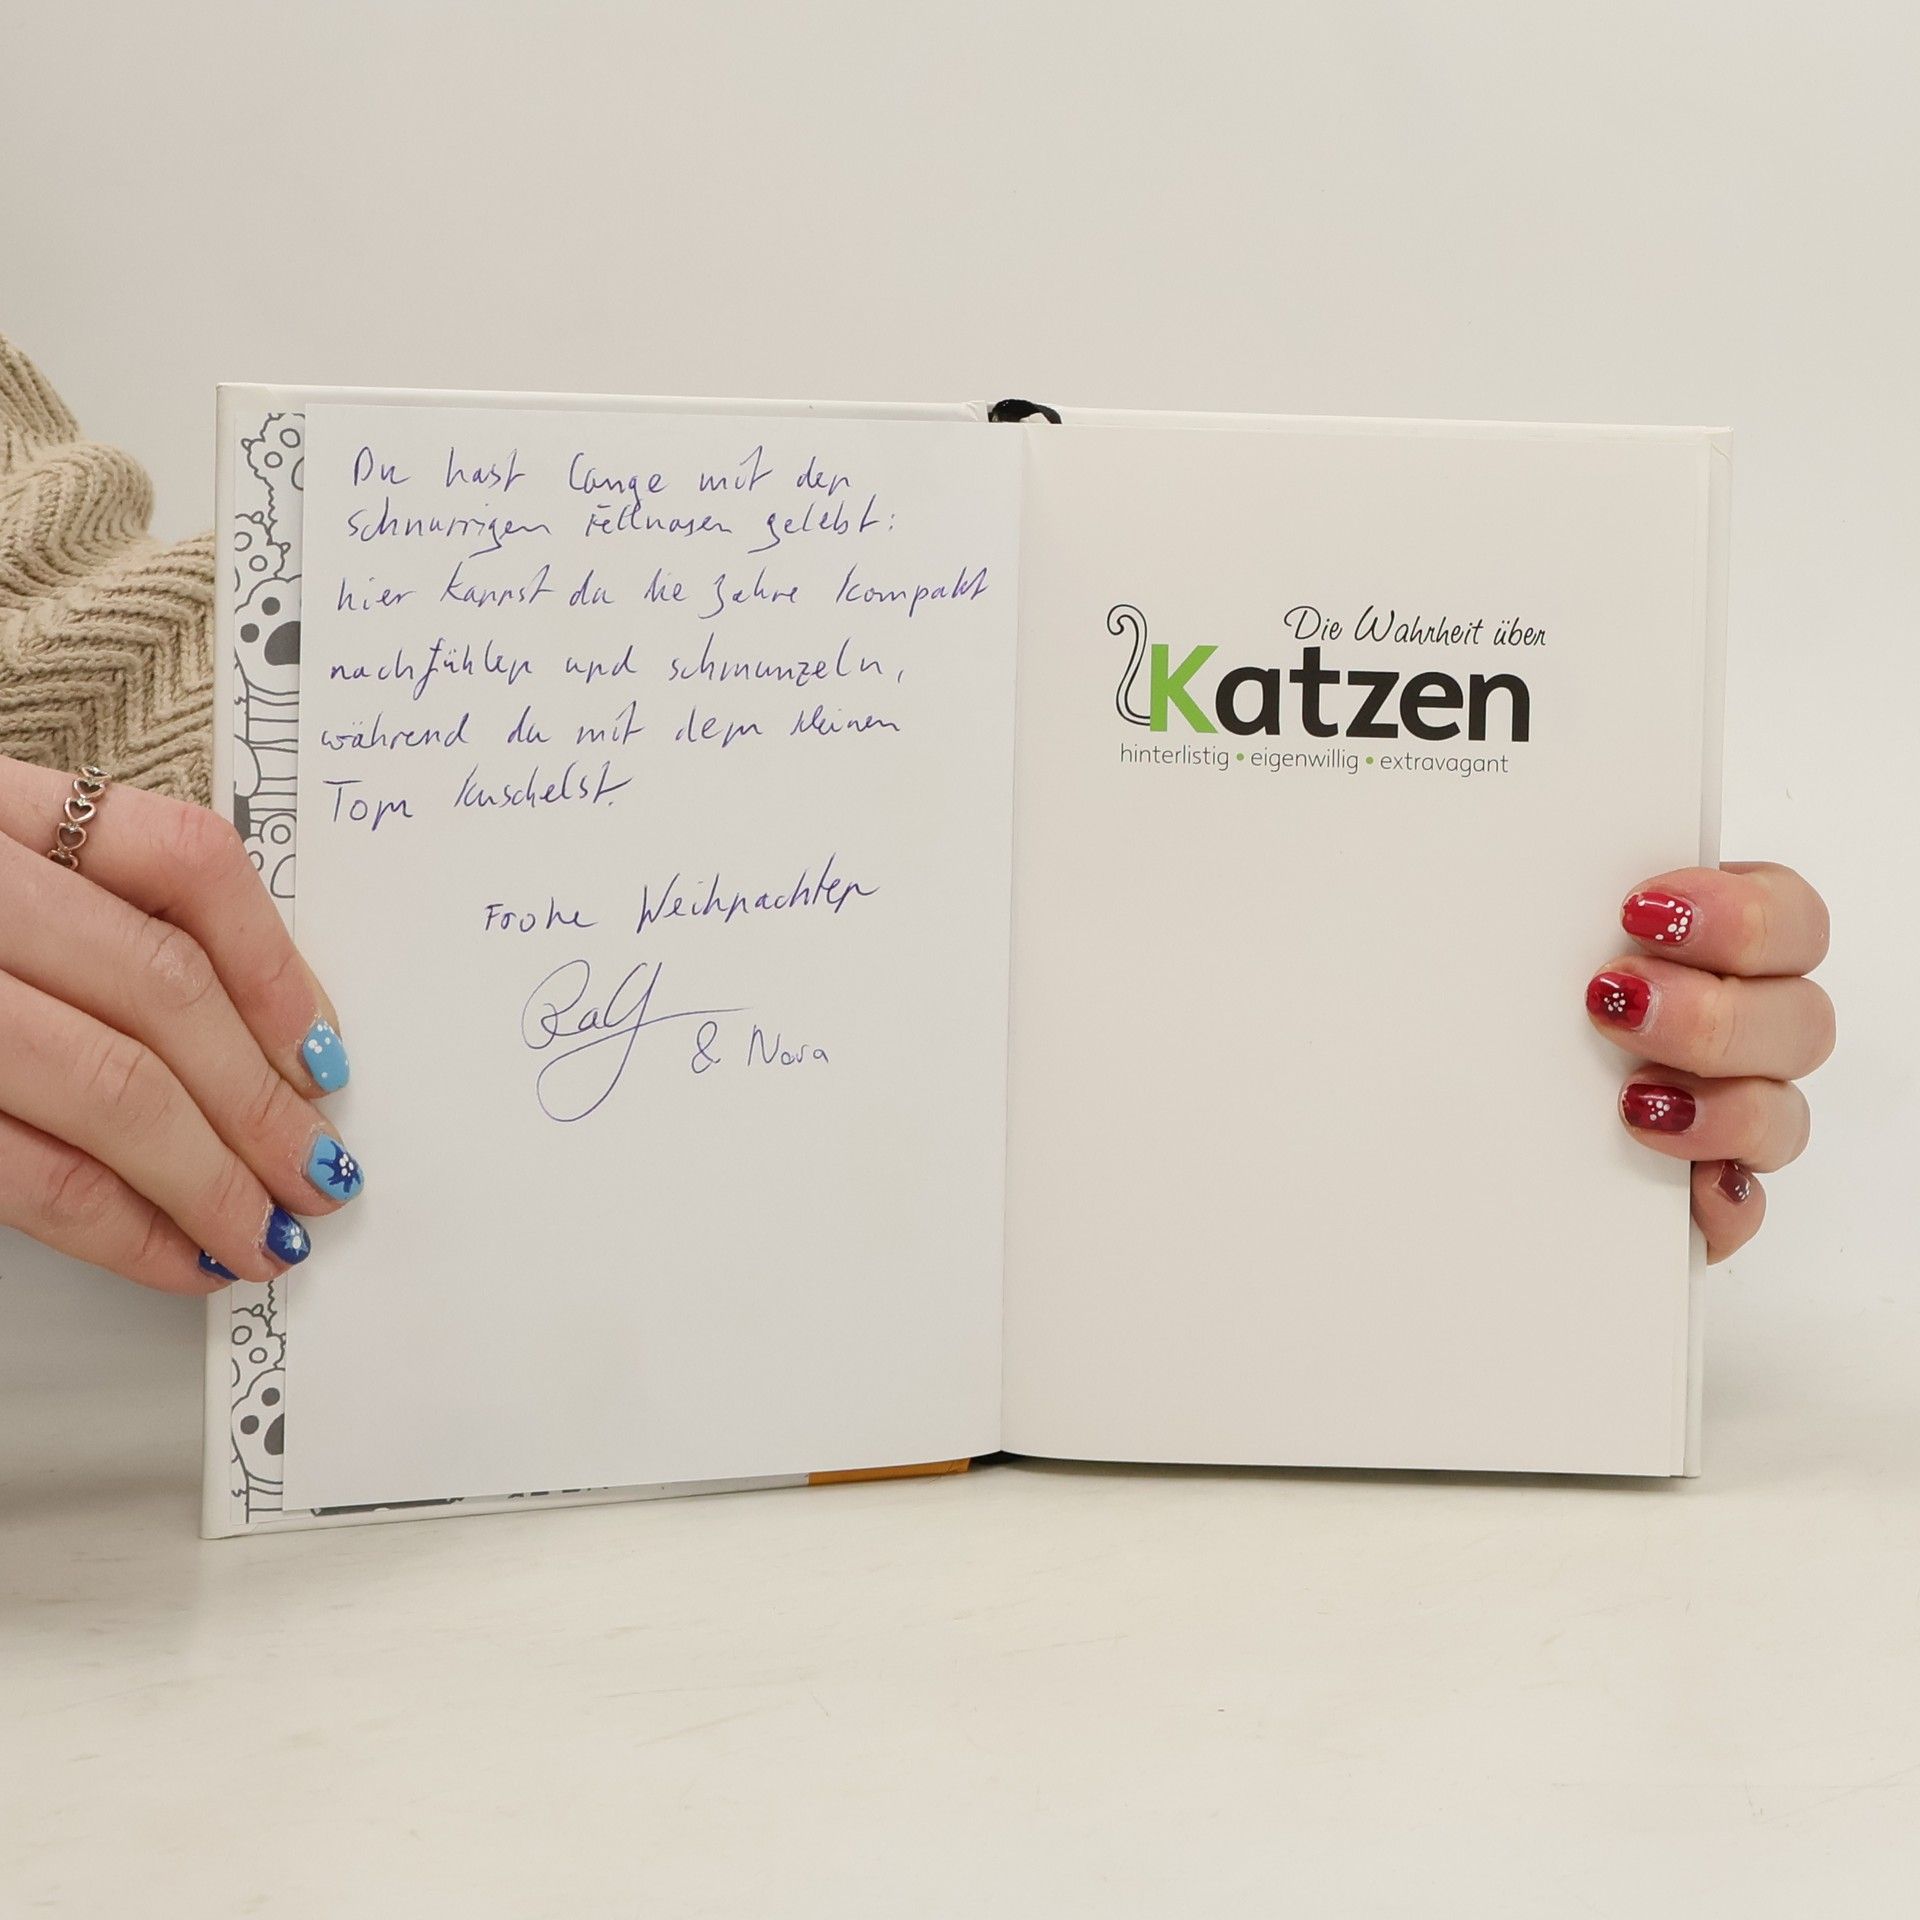 Du hast lange mit den
schnurrigen Fellnasen gelebt:
hier kannst du die Jahre kompakt
nachfühlen und schmunzeln,
während du mit dem kleinen
Tom kuschelst.
Frohe Weihnachten
Ralf
& Nora
Die Wahrheit über
Katzen
hinterlistig • eigenwillig • extravagant